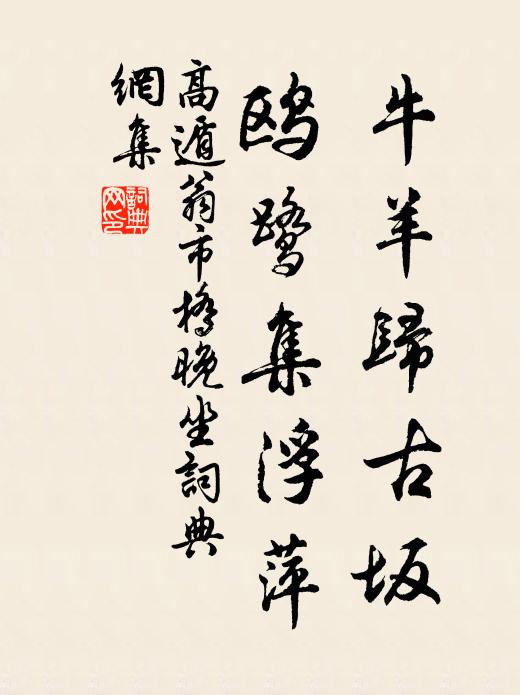 牛羊歸古坂
鸥鹭集浮萍
高遁翁市橋晚坐詞典
網集
詞典
网印